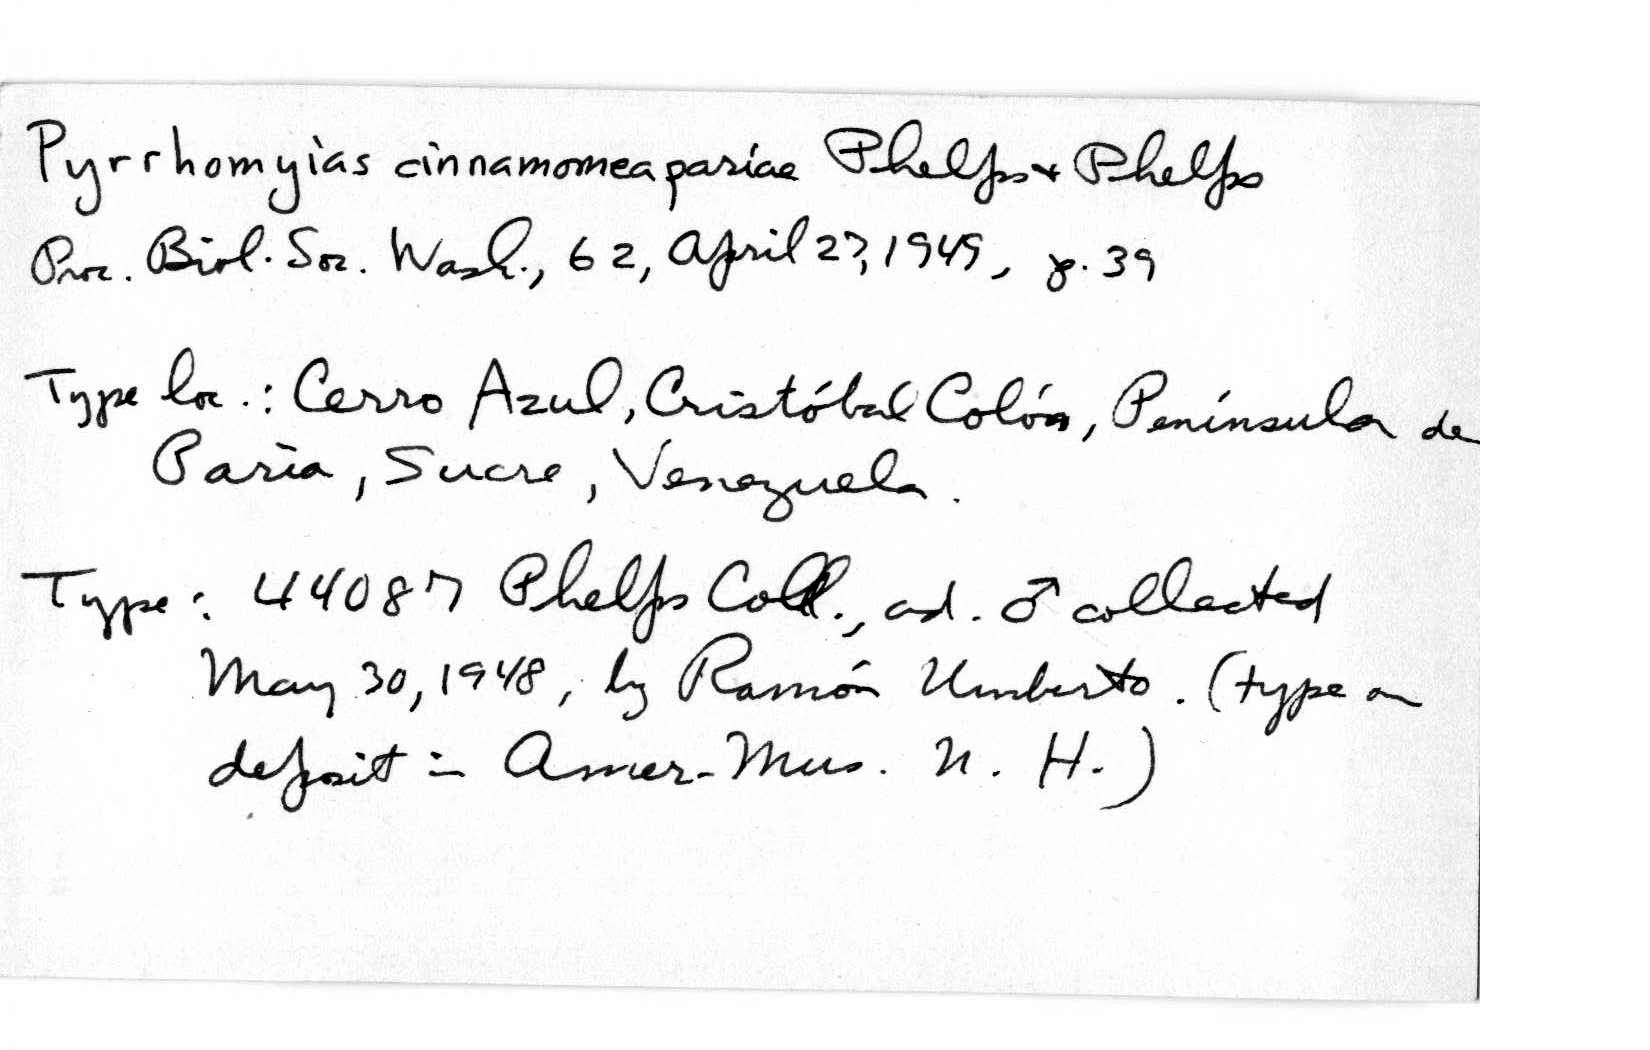 Pyrrhomyias cinnamomea pariae Phelps + Phelps
Proc. Biol. Soc. Wash., 62, April 27, 1949, p. 39
Type loc.: Cerro Azul, Cristóbal Colón, Península de
Paria, Sucre, Venezuela.
Type: 44087 Phelps Coll., ad. ♂ collected
May 30, 1948, by Ramón Umberto. (type on
deposit in Amer. Mus. N. H.)